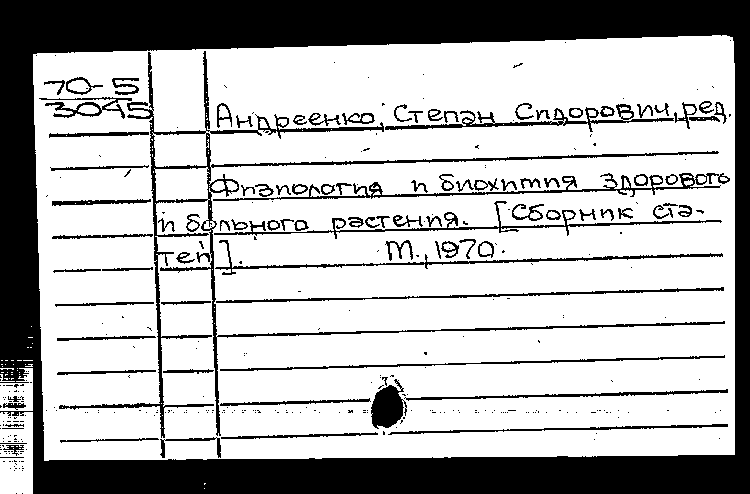 70-5
3045
Андреенко, Степан Сидорович, ред.
Физиология и биохимия здорового
и больного растения. [Сборник ста-
тей]. М., 1970.